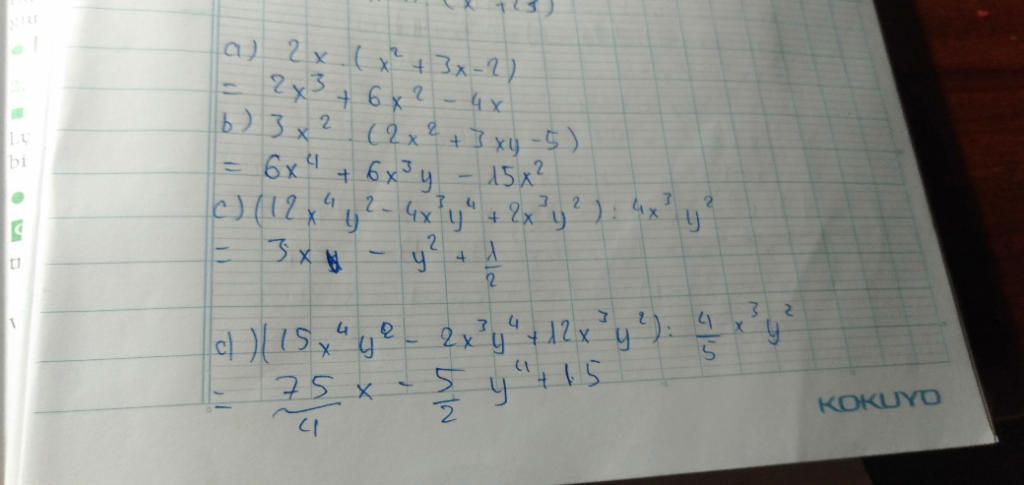 a) 2x.(x² + 3x - 2)
= 2x³ + 6x² - 4x
b) 3x².(2x² + 3xy - 5)
= 6x⁴ + 6x³y - 15x²
c) (12x⁴y² - 4x³y⁴ + 2x³y²) : 4x³y²
= 3x - y² + 1/2
d) (15x⁴y² - 2x³y⁴ + 12x³y²) : 4/5 x³y²
= 75/4 x - 5/2 y⁴ + 15
KOKUYO